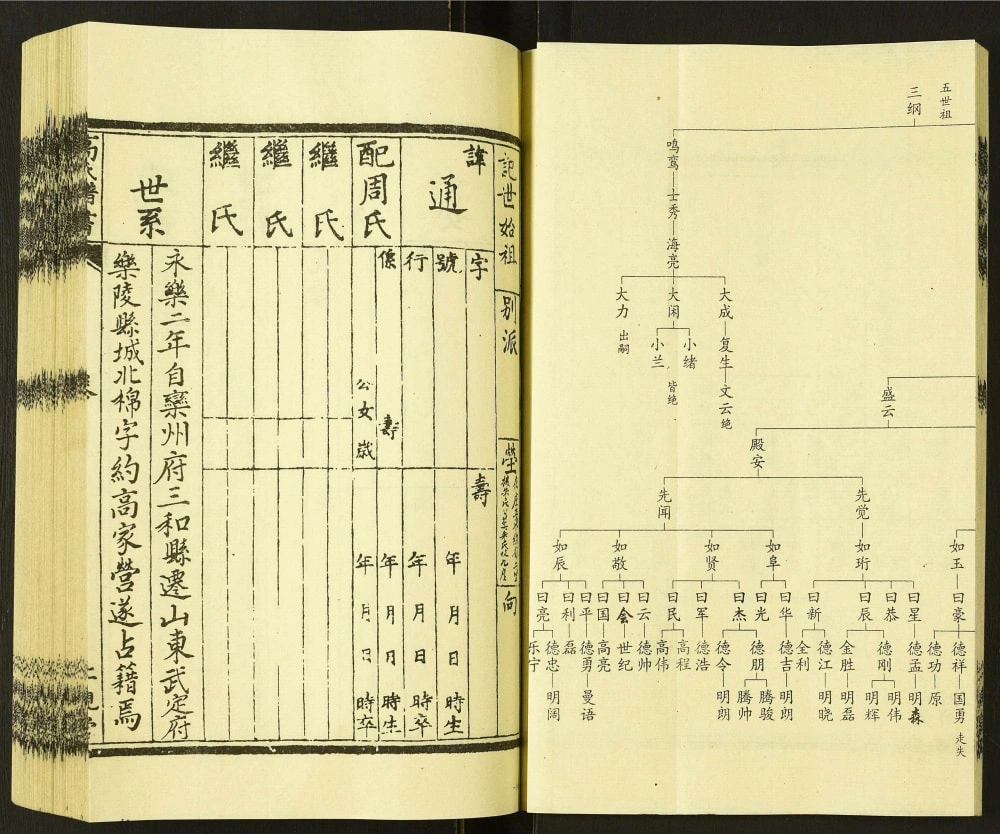 記世始祖
別派
塋
向
諱
通
字
號
行
壽
年月日時生
年月日時卒
配周氏
係
公女
壽
歲
年月日時生
年月日時卒
繼氏
繼氏
繼氏
世系
永樂二年自欒州府三和縣遷山東武定府
樂陵縣城北棉字約高家營遂占籍焉
五世祖
三纲
鸣鸾
士秀
海亮
大力 大闲 大成
出嗣
小兰 小绪 复生
皆绝
文云绝
盛云
殿安
先闻 先觉
如辰 如敬 如贤 如阜 如珩 如玉
曰亮 曰利 曰平 曰国 曰会 曰云 曰民 曰军 曰杰 曰光 曰华 曰新 曰辰 曰恭 曰星 曰豪
乐宁 德忠 磊 德勇 高亮 世纪 德帅 高伟 高程 德浩 德令 德朋 德吉 全利 德江 金胜 德刚 德孟 德功 德祥
明阔 曼语 明朗 腾帅 腾骏 明朗 明晓 明磊 明辉 明伟 明森 原 国勇
走失